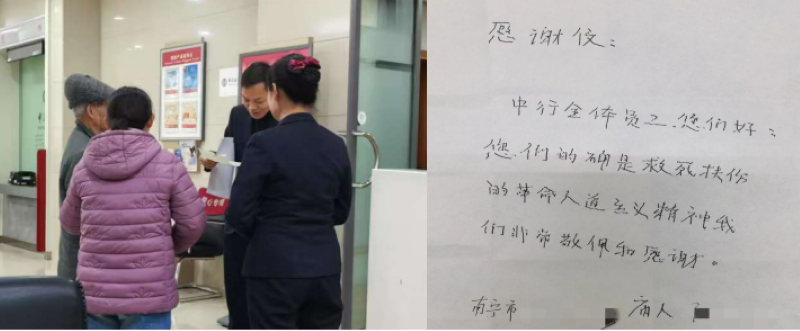 感谢伩：
中行全体员工.您们好：
您们的确是救死扶伤
的革命人道主义精神我
们非常敬佩和感谢。
南宁市 病人